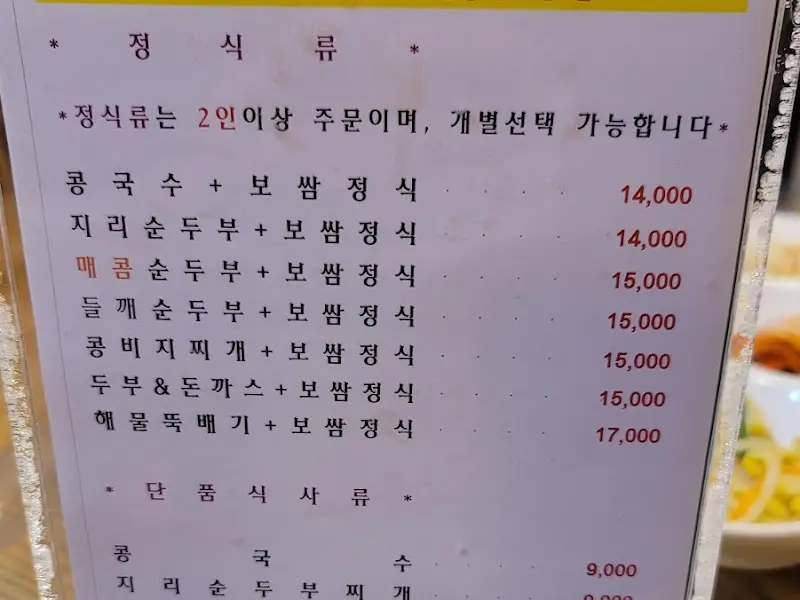 * 정 식 류 *
*정식류는 2인이상 주문이며, 개별선택 가능합니다*
콩 국 수 + 보 쌈 정 식 · · · · · 14,000
지 리 순 두 부 + 보 쌈 정 식 · · · · · 14,000
매 콤 순 두 부 + 보 쌈 정 식 · · · · 15,000
들 깨 순 두 부 + 보 쌈 정 식 · · · · 15,000
콩 비 지 찌 개 + 보 쌈 정 식 · · · · 15,000
두 부 & 돈 까 스 + 보 쌈 정 식 · · · · 15,000
해 물 뚝 배 기 + 보 쌈 정 식 · · · · 17,000
* 단 품 식 사 류 *
콩 국 수 · · · · 9,000
지 리 순 두 부 찌 개